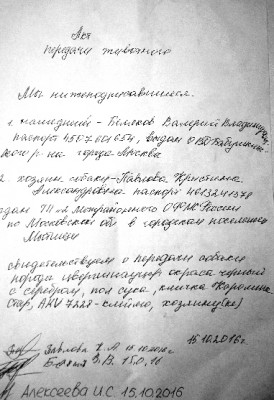 Акт
передачи животного
Мы нижеподписавшиеся.
1. нашедший - Валерий Владимиров
паспорт 4507601654, выдан ОВД Бабушкин-
р-на города Москва
2. хозяин собаки - Павлова Кристина
Александровна паспорт 4613241579
ТП №2 межрайонного ОФМС России
по Московской обл в городском поселении
Мытищи
свидетельствуем о передаче собаки
порода цвергшнауцер окраса черный
с серебром, пол сука, кличка Каролина
Стар, AKV 7228 - клеймо, хозяину(ке)
15.10.2016г
Павлова
В.В. 15.0.16
Алексеева И.С. 15.10.2016